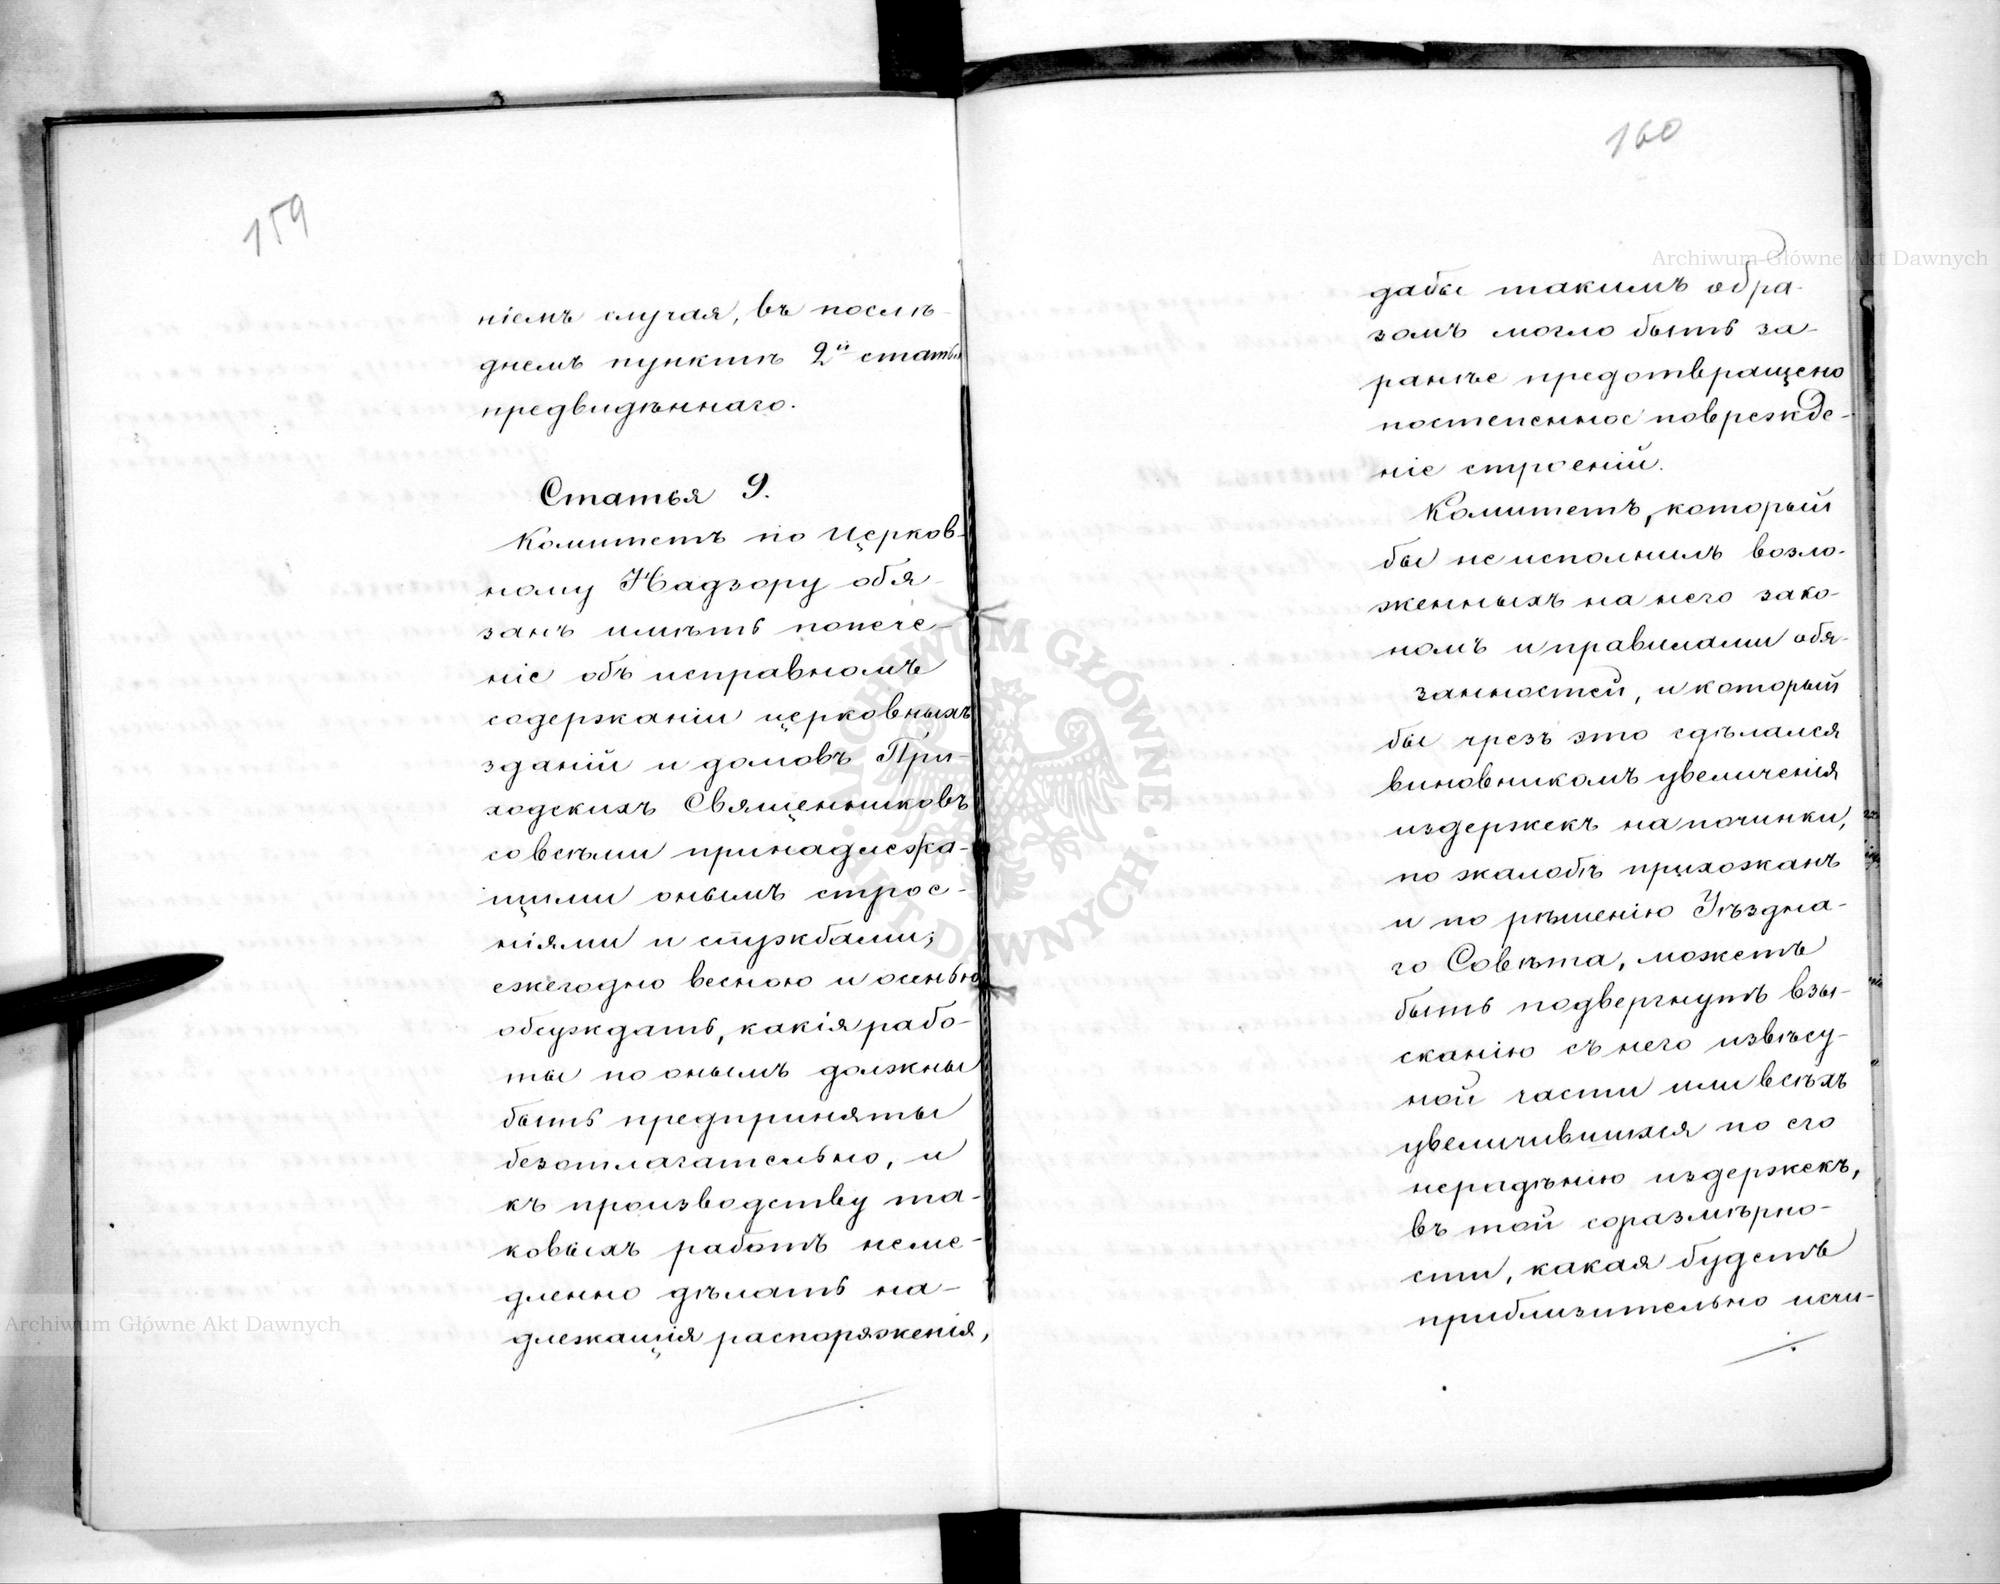 159
ніемъ случая, въ послѣ-
днемъ пунктѣ 2й статьи
предвидѣннаго.
Статья 9.
Комитетъ по Церков-
ному Надзору обя-
занъ имѣть попече-
ніе объ исправномъ
содержаніи церковныхъ
зданій и домовъ При-
ходскихъ Священниковъ
со всѣми принадлежа-
щими онымъ строе-
ніями и службами;
ежегодно весною и осенью
обсуждать, какія рабо-
ты по онымъ должны
быть предприняты
безотлагательно, и
къ производству та-
ковыхъ работъ неме-
дленно дѣлать на-
длежащія распоряженія,
160
дабы такимъ обра-
зомъ могло быть за-
ранѣе предотвращено
постепенное поврежде-
ніе строеній.
Комитетъ, который
бы не исполнилъ возло-
женныхъ на него зако-
номъ и правилами обя-
занностей, и который
бы чрезъ это сдѣлался
виновникомъ увеличенія
издержекъ на починки,
по жалобѣ прихожанъ
и по рѣшенію Уѣздна-
го Совѣта, можетъ
быть подвергнутъ взы-
сканію съ него извѣсу-
ной части или всѣхъ
увеличившихся по его
нерадѣнію издержекъ,
въ той соразмѣрно-
сти, какая будетъ
приблизительно исчи-
Archiwum Główne Akt Dawnych
Archiwum Główne Akt Dawnych
ARCHIWUM GŁÓWNE AKT DAWNYCH